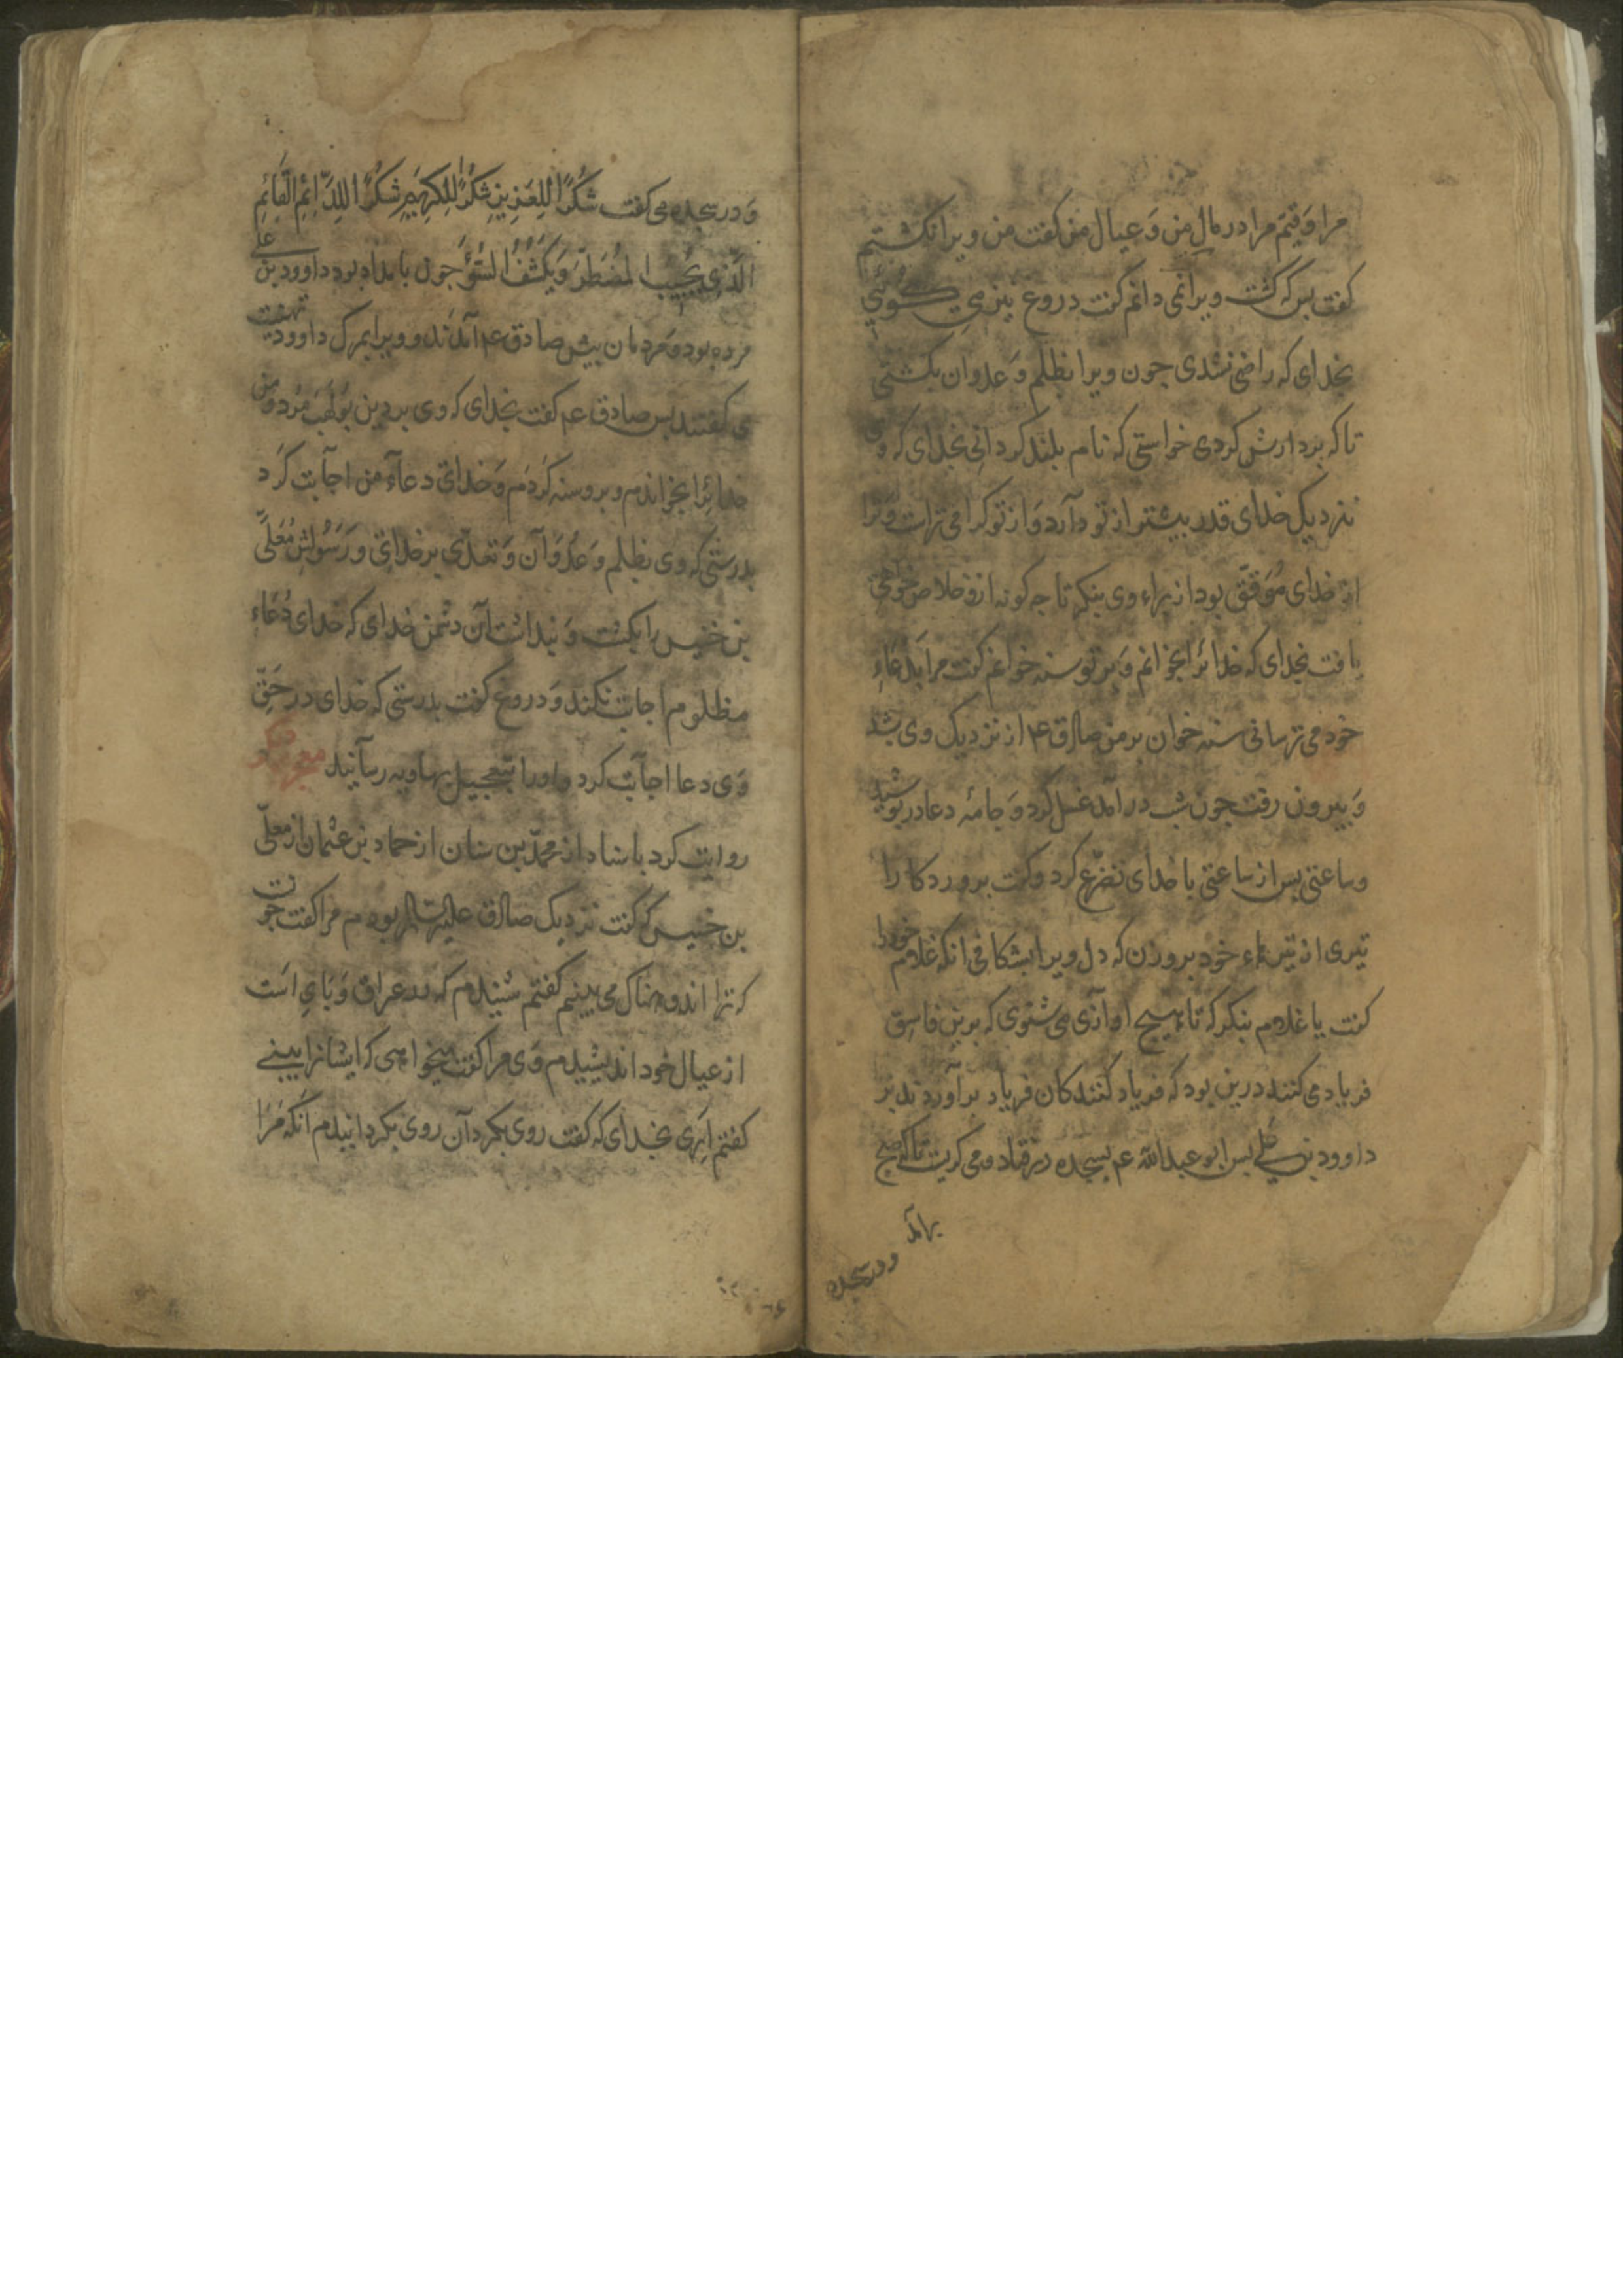 مرا وقیّم مرا در مالِ من وَ عیال من کفت من ویرا نکشتم
کفت بس که کشت ویرا نمی دانم کفت دروغ نیز می کوئی
بخدای که راضی نشدی جون ویرا بظلم وَ عدوان بکشتی
تا که بردارش کردی خواستی که نام بلند کردانی بخدای که وی
نزدیک خدای قدر بیشتر از تو دارد وَ از تو کرامی تر است وَ ترا
از خدای مُوَفّق بود از براء وی بنکر تا جه کونه ازو خلاص خواهی
یافت بخدای که خدائرا بخوانم وَ بر تو سنه خوانم کفت مرا بدعاءِ
خود می ترسانی سنه خوان بر من صادق ع م از نزدیک وی بشد
وَ بیرون رفت جون شب درآمد غسل کرد وَ جامۀ دعا در بوشید
وساعتی بس از ساعتی با خدای تضرّع کرد وکفت بروردکارا
تیری از تیرهاء خود برو زن که دل ویرا بشکافی انکه غلام خود را
کفت یا غلام بنکر که تا هیج اوازی می شنوی که برین فاسِق
فریاد می کنند درین بود که فریاد کنندکان فریاد برآوردند بر
داوود بن علی بس ابو عبدالله عم بسجده در افتاد ومی کریست تا که صبح
برآمد
ودر سجده
وَ در سجده می کفت شُکرًا لِلعَزِیزِ شُکرًا لِلکَرِیمِ شُکرًا لِلدَّائِمِ القَائِمِ
الَّذِی یُجِیبُ المُضطَرَّ وَیَکشِفُ السُّوءَ جون بامداد بود داوود بن علی
مرده بود وَ مردمان بیش صادق ع م آمدند و ویرا بمرک داوود تهنیت
می کفتند بس صادق عم کفت بخدای که وی بر دین بُولَهَب مُرد وَ من
خدائرا بخواندم و برو سنه کردم وَ خدای دعاءِ من اجابت کرد
بدرستی که وی بظلم وَ عُدوَان وَ تعدّی بر خدای و رَسُولش مُعَلّی
بن خنیس را بکشت وَ نبدانست آن دشمن خدای که خدای دُعَاء
مظلوم اجابت نکند وَ دروغ کفت بدرستی که خدای در حَقّ
وَی دعا اجابت کرد و اورا بتعجیل بهاویه رسانید معجز دیکر
روایت کرد باسناد از محمّد بن سنان از حماد بن عثمان از معلّی
بن خنیس که کفت نزدیک صادق علیه السّلام بودم مرا کفت جونست
که ترا اندوهناک می بینم کفتم شنیدم که در عراق وَبَایِ است
از عیال خود اندیشیدم وَی مرا کفت میخواهی که ایشانرا ببینی
کفتم اَرَی بخدای که کفت روی بکردان روی بکردانیدم انکه مَرَا